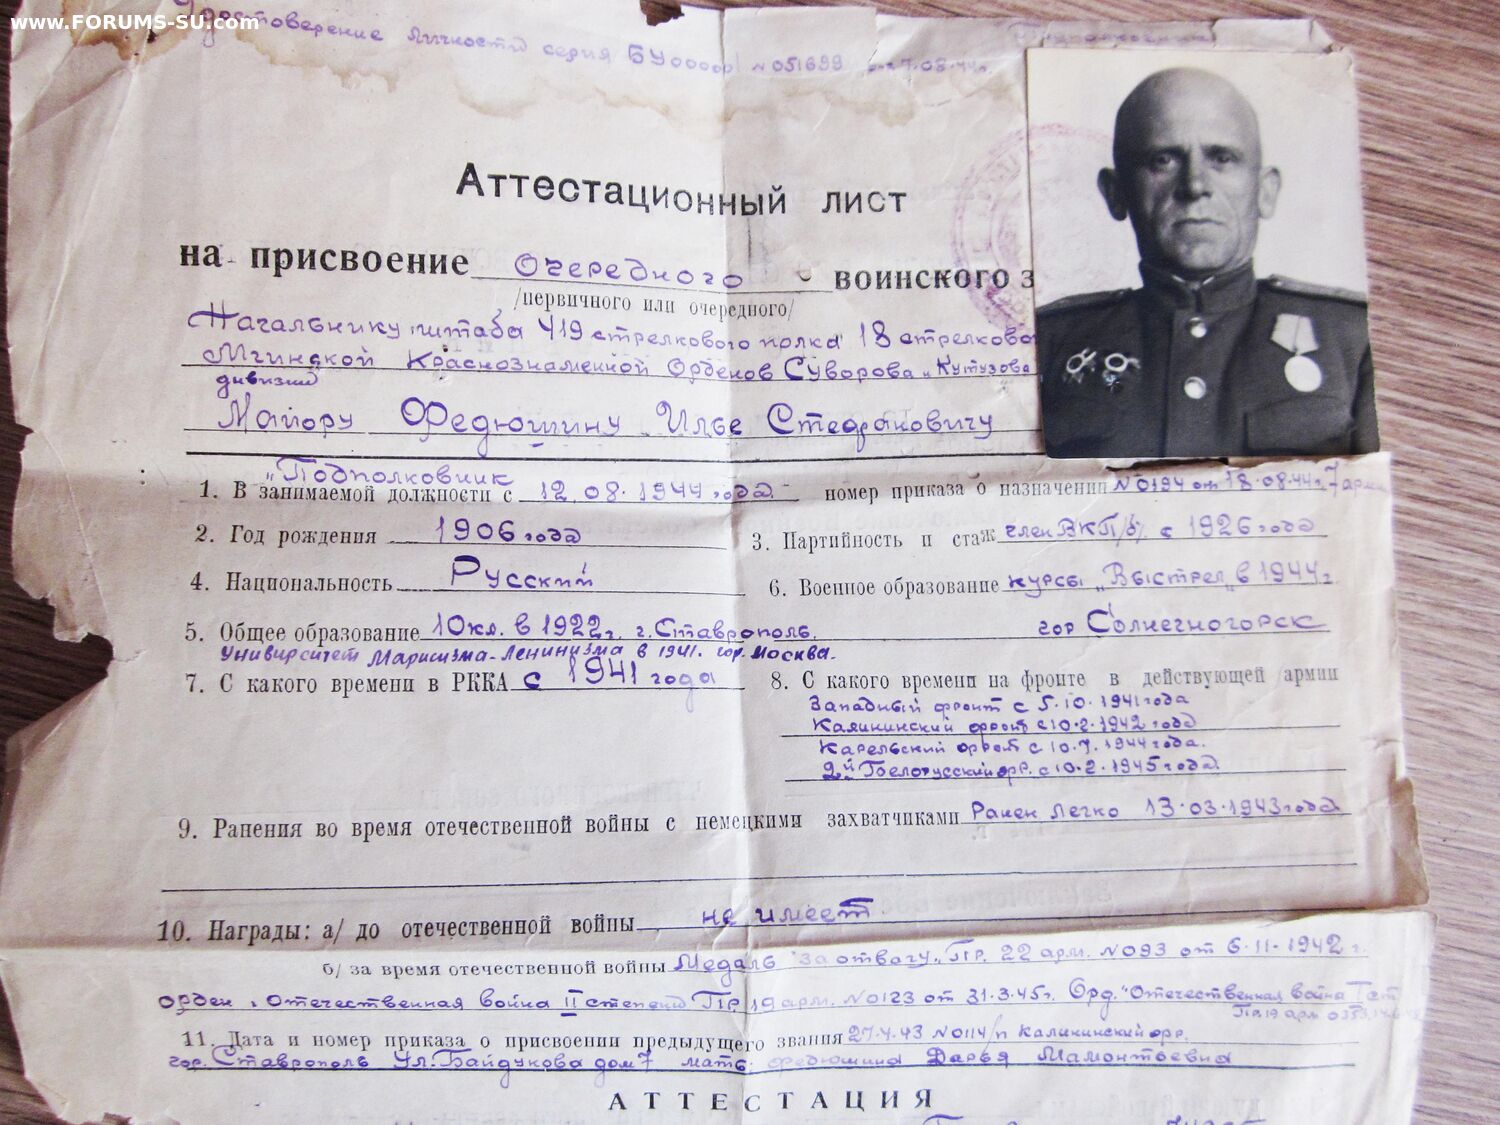 www.FORUMS-SU.com
Удостоверение личности серия БУ № 051699
Аттестационный лист
на присвоение очередного воинского з
/первичного или очередного/
Начальнику штаба 419 стрелкового полка 18 стрелково
Мгинской Краснознаменной Орденов Суворова и Кутузова
дивизии
Майору Федюшину Илье Стефановичу
"Подполковник
1. В занимаемой должности с 12.08.1944 года номер приказа о назначении №0194 от 18.08.44г. 7 арм
2. Год рождения 1906 года 3. Партийность и стаж член ВКП/б/ с 1926 года
4. Национальность Русский 6. Военное образование курсы "Выстрел" в 1944г.
5. Общее образование 10 кл. в 1922г. г. Ставрополь. гор Солнечногорск
Университет Марксизма-Ленинизма в 1941. гор. Москва.
7. С какого времени в РККА с 1941 года 8. С какого времени на фронте в действующей армии
Западный фронт с 5.10.1941 года
Калининский фронт с 10.2.1942 года
Карельский фронт с 10.7.1944 года.
2й Белорусский фр. с 10.2.1945 года
9. Ранения во время отечественной войны с немецкими захватчиками Ранен Легко 13.03.1943 года
10. Награды: а/ до отечественной войны не имеет
б/ за время отечественной войны Медаль "За отвагу". Пр. 22 арм. №093 от 6.11.1942 г.
орден "Отечественная война II степени Пр. 19 арм. №0123 от 31.3.45г. Орд. "Отечественная война I ст
Пр. 19 арм
11. Дата и номер приказа о присвоении предыдущего звания 27.4.43 №0114/п Калининский фр.
гор. Ставрополь ул. Байдукова дом 7 мать: Федюшина Дарья Мамонтовна
АТТЕСТАЦИЯ